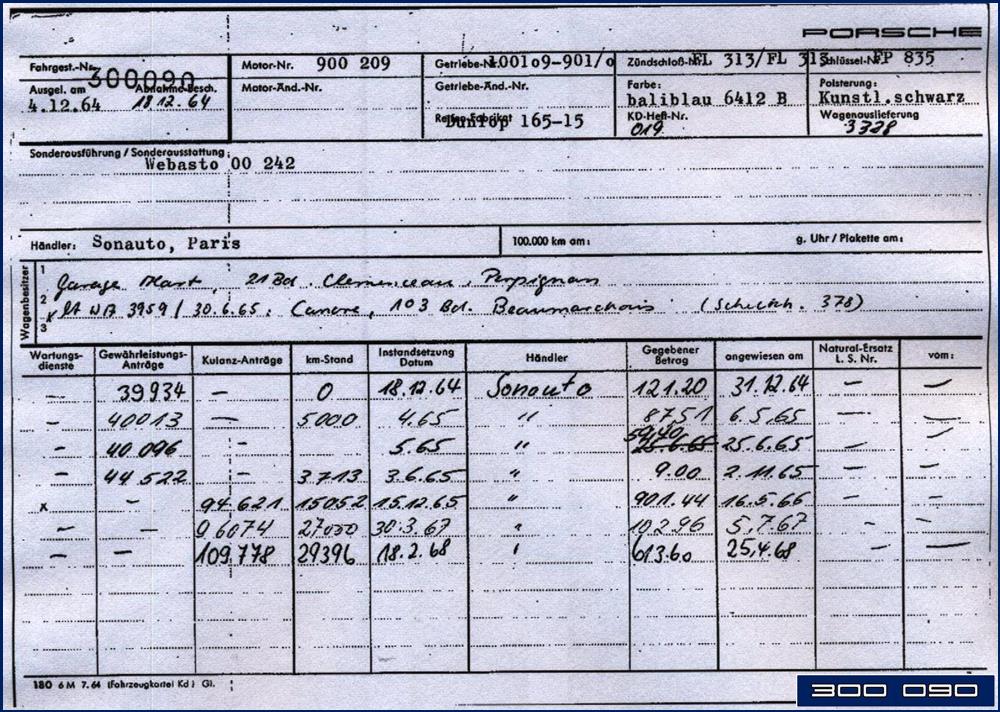 PORSCHE
Fahrgest.-Nr. 300090 Motor-Nr. 900 209 Getriebe-Nr. 100109-901/0 Zündschloß-Nr. FL 313/FL 313 Schlüssel-Nr. FP 835
Ausgel. am 4.12.64 Abnahme-Besch. 18 12. 64 Motor-Änd.-Nr. Getriebe-Änd.-Nr. Farbe: baliblau 6412 B Polsterung: Kunstl.schwarz
Reifen-Fabrikat Dunlop 165-15 KD-Heft-Nr. 019 Wagenauslieferung 3328
Sonderausführung / Sonderausstattung:
Webasto 00 242
Händler: Sonauto, Paris 100.000 km am: g. Uhr / Plakette am:
Wagenbesitzer
1 Garage 21 Bd. Clemenceau, Perpignan
2 lt WA 3959 / 30.6.65: 103 Bd. Beaumarchais 378)
3
Wartungs-dienste Gewährleistungs-Anträge Kulanz-Anträge km-Stand Instandsetzung Datum Händler Gegebener Betrag angewiesen am Natural-Ersatz L. S. Nr. vom:
— 39934 — 0 18.12.64 Sonauto 121.20 31.12.64 — —
— 40013 — 5000 4.65 " 87.51 6.5.65 — —
— 40 096 - 5.65 " 25.6.65 25.6.65 — —
— 44 522 - 3713 3.6.65 " 9.00 2.11.65 — —
x - 94 621 15052 15.12.65 " 901.44 16.5.66 — —
— — 96074 27000 30.3.67 " 102.96 5.7.67 - —
— — 109.778 29396 18.2.68 " 613.60 25.4.68 — —
180 6 M 7. 64 (Fahrzeugkartei Kd) Gl.
300 090